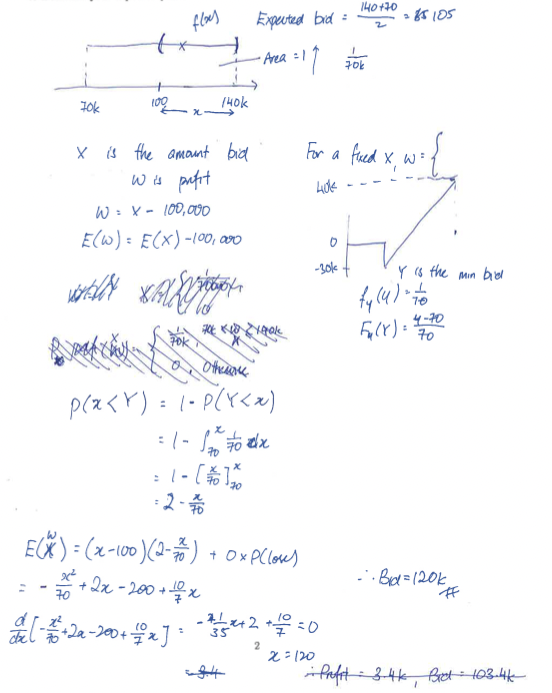 f(x) Expected bid = (140+70)/2 = 105
Area = 1 1/70k
70k 100 140k
x
X is the amount bid
W is profit
W = X - 100,000
E(W) = E(X) - 100,000
For a fixed X, W = {
40k
0
-30k
Y is the min bid
f_Y(y) = 1/70
F_Y(Y) = (y-70)/70
1/70k
0, otherwise
P(x<Y) = 1 - P(Y<x)
= 1 - ∫_70^x 1/70 dx
= 1 - [x/70]_70^x
= 2 - x/70
E(W) = (x-100)(2 - x/70) + 0 x P(lose)
= - x²/70 + 2x - 200 + 10/7 x
∴ Bid = 120k
d/dx [-x²/70 + 2x - 200 + 10/7 x] = - 1/35 x + 2 + 10/7 = 0
2
x = 120
= 3.4
∴ Profit = 3.4k, Bid = 103.4k